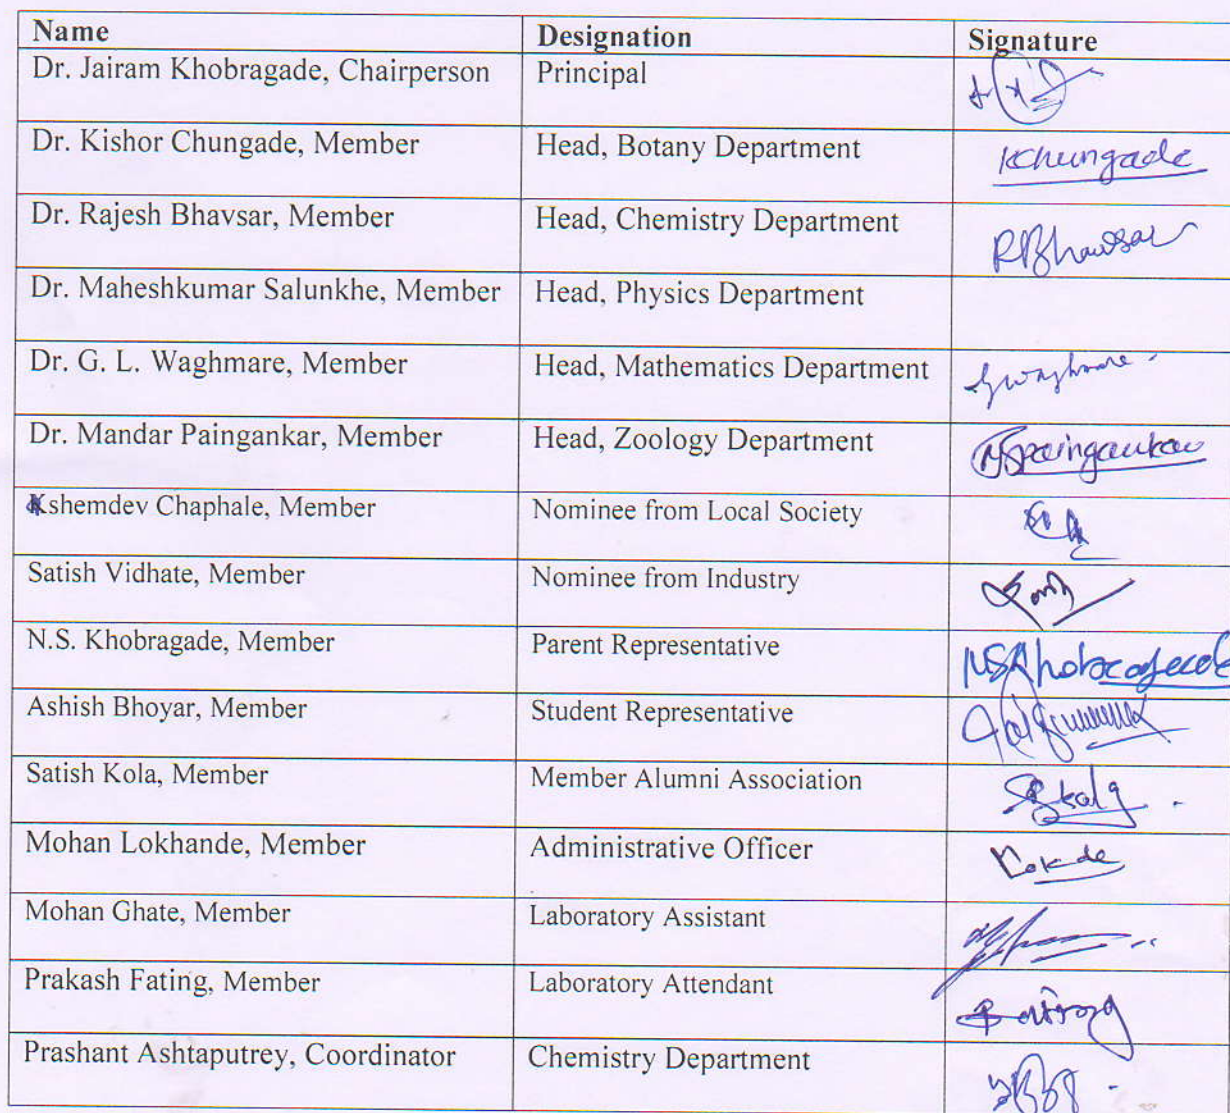 Name Designation Signature
Dr. Jairam Khobragade, Chairperson Principal
Dr. Kishor Chungade, Member Head, Botany Department KChungade
Dr. Rajesh Bhavsar, Member Head, Chemistry Department RBhavsar
Dr. Maheshkumar Salunkhe, Member Head, Physics Department
Dr. G. L. Waghmare, Member Head, Mathematics Department Gwaghmare
Dr. Mandar Paingankar, Member Head, Zoology Department MSpaingankar
Kshemdev Chaphale, Member Nominee from Local Society
Satish Vidhate, Member Nominee from Industry
N.S. Khobragade, Member Parent Representative NSKhobragade
Ashish Bhoyar, Member Student Representative
Satish Kola, Member Member Alumni Association
Mohan Lokhande, Member Administrative Officer
Mohan Ghate, Member Laboratory Assistant
Prakash Fating, Member Laboratory Attendant
Prashant Ashtaputrey, Coordinator Chemistry Department